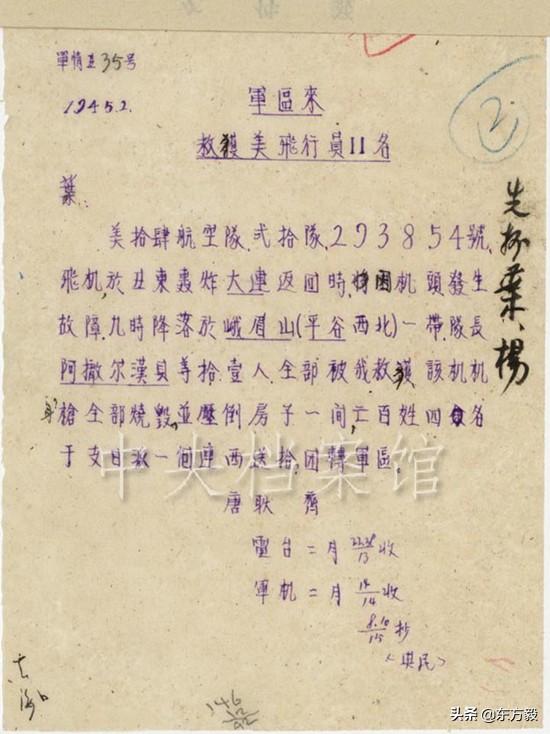 軍情直35号
1945.2.
軍區來
救獲美飛行員11名
葉:
美拾肆航空隊,弍拾隊,293854號
飛机,於丑東轟炸大連返回時,因机頭發生
故障,九時降落於峨眉山(平谷西北)一帶,隊長
阿撒尔漢貝等拾壹人,全部被我救獲,該机机
身槍全部燒毀,並壓倒房子一间,亡百姓四名
于支日派一個連西送拾,团轉軍區。
唐耿 齊
電台二月 /13收
軍机二月 /14收
8.10/15抄
先抄葉、楊
2
146
中央档案馆
头条 @东方毅